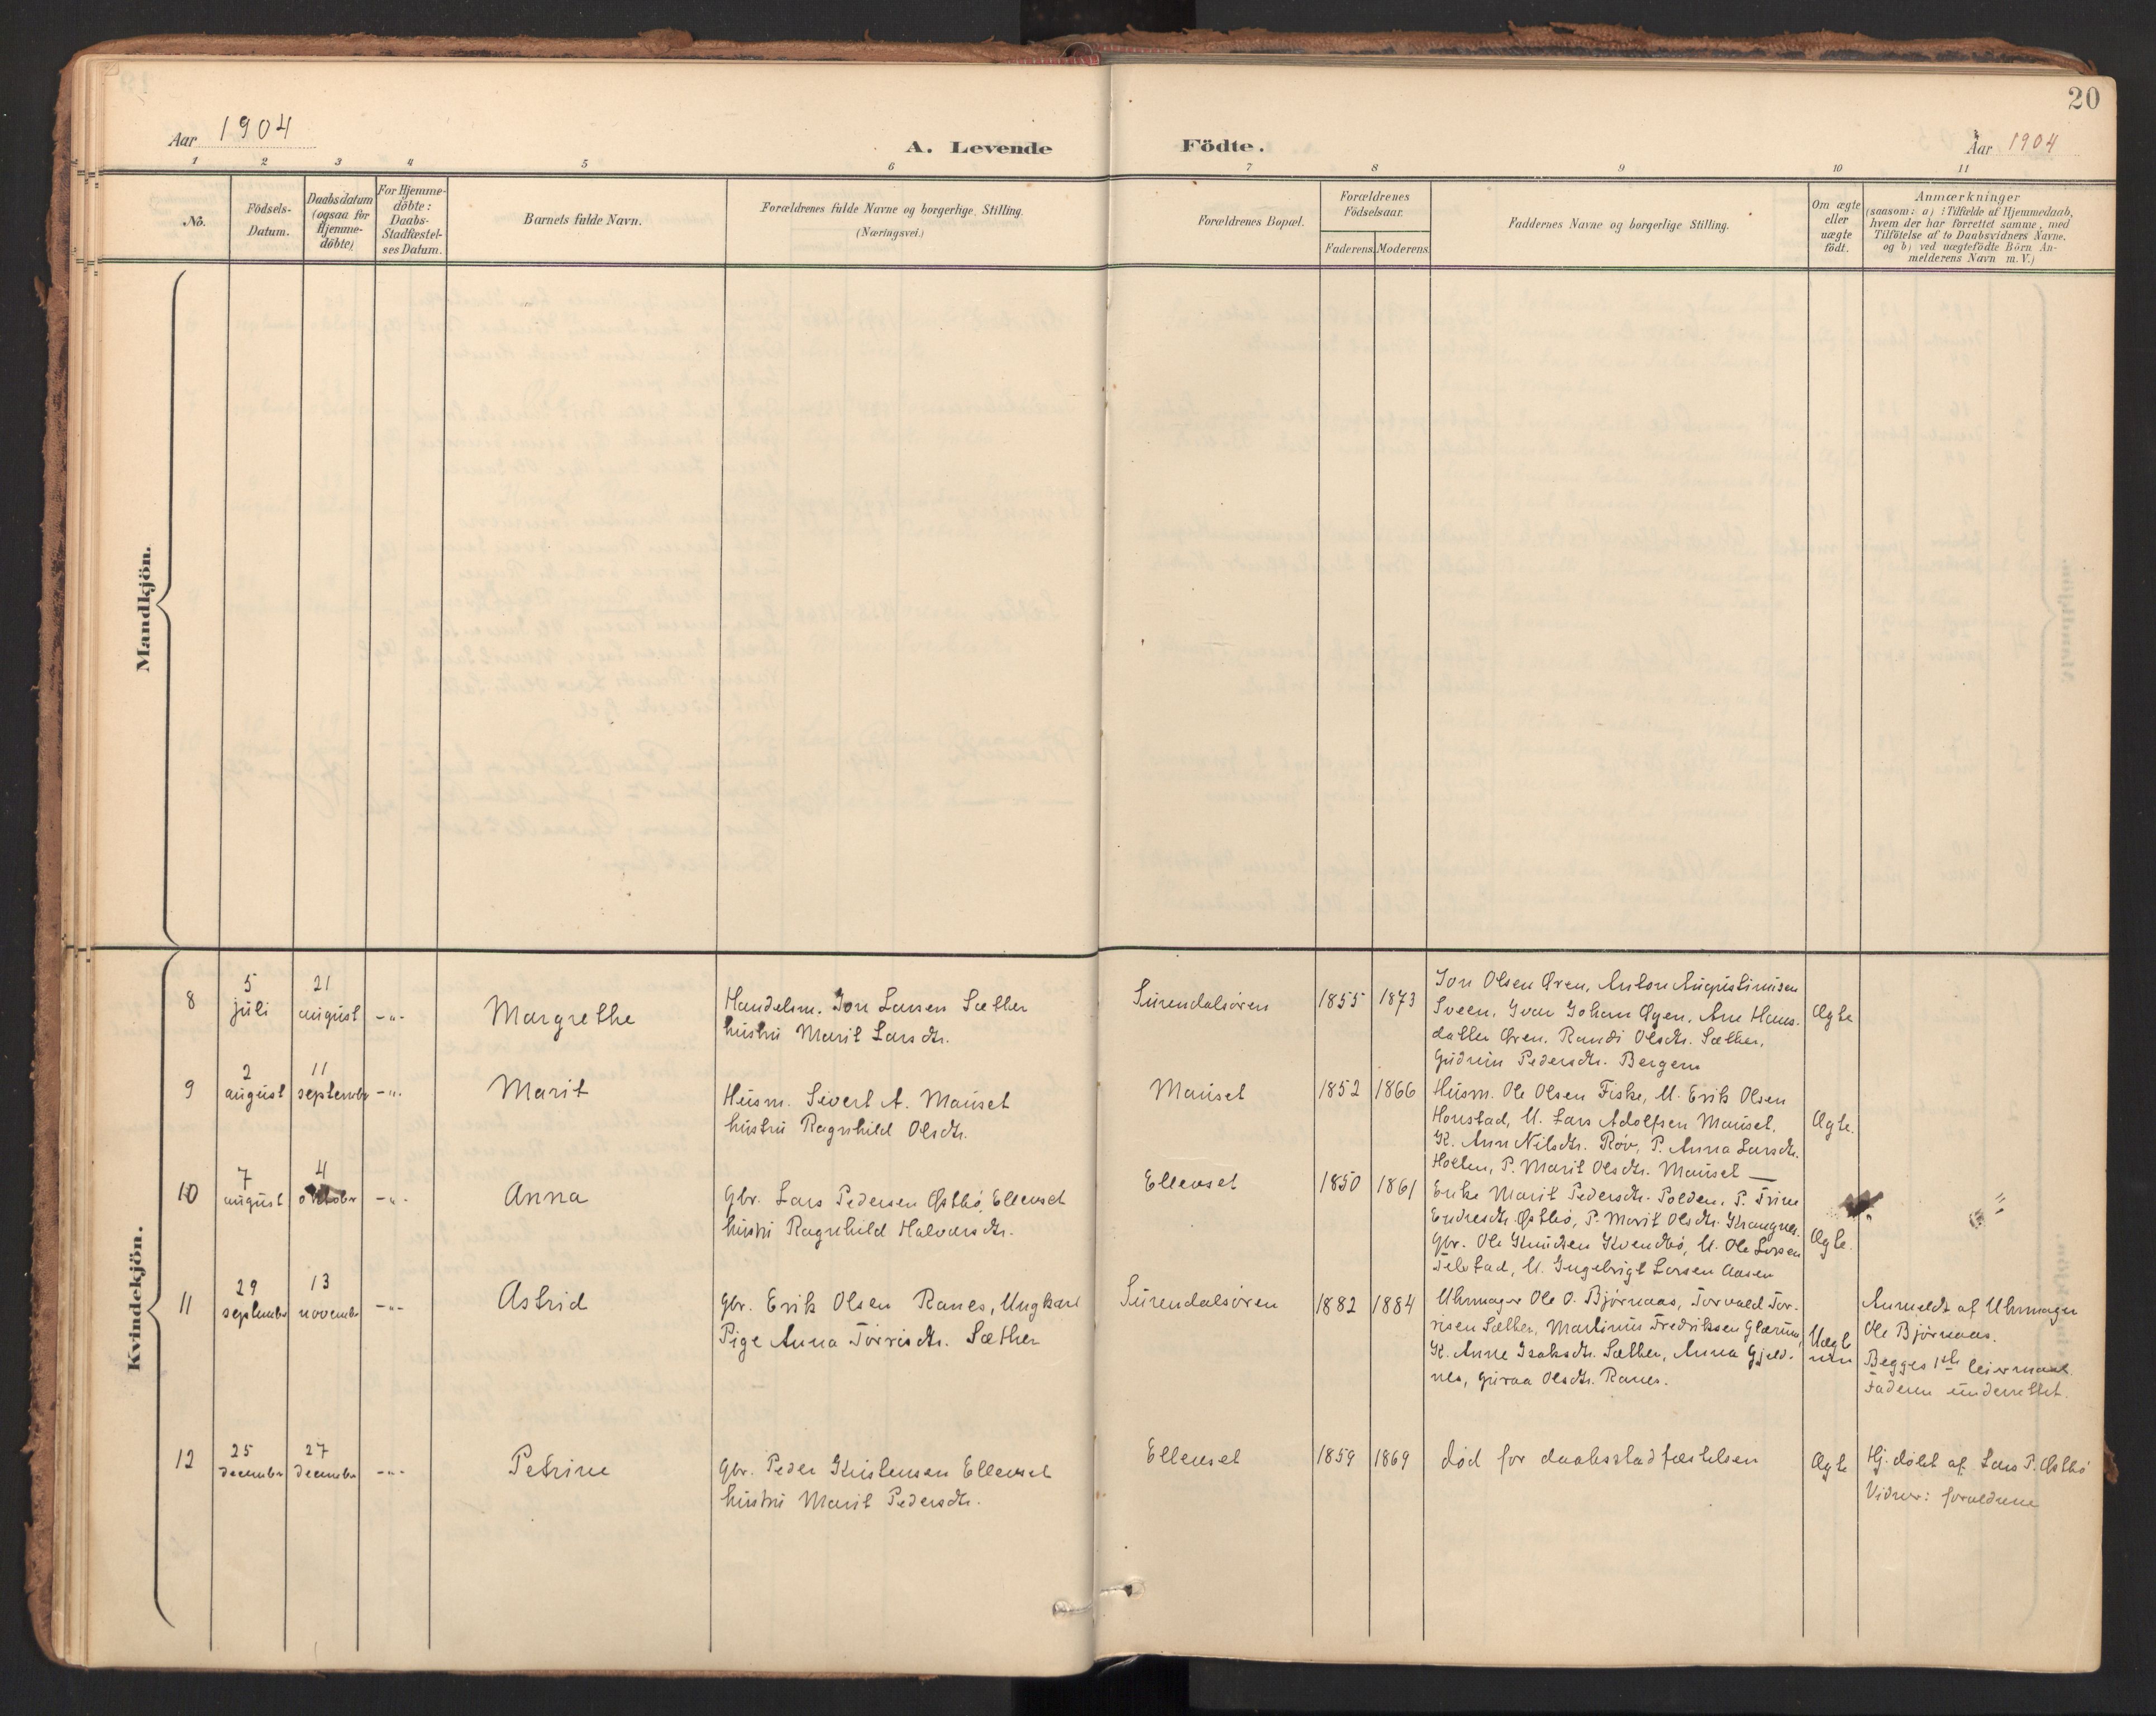 20
Aar 1904
A. Levende Födte.
Aar 1904
1 2 3 4 5 6 7 8 9 10 11
No.
Födsels-
Datum.
Daabsdatum
(ogsaa for
Hjemme-
döbte)
For Hjemme-
döbte:
Daabs-
Stadfæstel-
ses Datum.
Barnets fulde Navn.
Forældrenes fulde Navne og borgerlige Stilling.
(Næringsvei.)
Forældrenes Bopæl.
Forældrenes
Födselsaar.
Faderens. Moderens.
Faddernes Navne og borgerlige Stilling.
Om ægte
eller
uægte
födt.
Anmærkninger
(saasom: a) i Tilfælde af Hjemmedaab,
hvem der har forrettet samme, med
Tilføielse af to Daabsvidners Navne,
og b) ved uægtefödte Börn An-
melderens Navn m. V.)
Mandkjön.
Kvindekjön.
8
5
juli
21
august
-"-
Margrethe
Handelsm. Jon Larsen Sæther
hustru Marit Larsdtr.
Surendalsören
1855
1873
Jon Olsen Øren, Anton Augustinusen
Sveen, Ivar Johan Øyen, Ane Hans-
datter Øren, Randi Olsdtr. Sæther,
Gudrun Pedersdtr. Bergem
Ægte
9
2
august
11
septembr
-"-
Marit
Husm. Sivert A. Mauset
hustru Ragnhild Olsdtr.
Mauset
1852
1866
Husm. Ole Olsen Fiske, U. Erik Olsen
Honstad, U. Lars Adolfsen Mauset,
K. Ann Nilsdtr. Röv, P. Anna Larsdtr.
Holten, P. Marit Olsdtr. Mauset —
Ægte.
10
7
august
4
oktober
-"-
Anna
Gbr. Lars Pedersen Østbö, Ellevset
hustru Ragnhild Halvorsdtr.
Ellevset
1850
1861
Enke Marit Pedersdtr. Polden, P. Trine
Endresdtr. Østbö, P. Marit Olsdtr. Krangnes.
Gbr. Ole Knudsen Kvendbö, U. Ole Larsen
Telstad, U. Ingebrigt Larsen Aasen
Ægte.
11
29
septembr
13
novembr
-"-
Astrid
Gbr. Erik Olsen Ranes, Ungkarl
Pige Anna Torrisdtr. Sæther
Surendalsören
1882
1884
Uhrmager Ole O. Björnaas, Torvald Tor-
risen Sæther, Martinus Fredriksen Glærum,
K. Anne Isaksdtr. Sæther, Anna Gjeld-
nes, Guroa Olsdtr. Ranes.
Anmeldt af Uhrmager
Ole Björnaas.
Begges 1ste leiermaal.
Faderen underrettet.
12
25
december
27
december
-"-
Petrine
Gbr. Peder Kristensen Ellevset
hustru Marit Pedersdtr.
Ellevset
1859
1869
död for daabsstadfæstelsen
Ægte
Hj. döbt af Lars P. Østbö
Vidner: forældrene